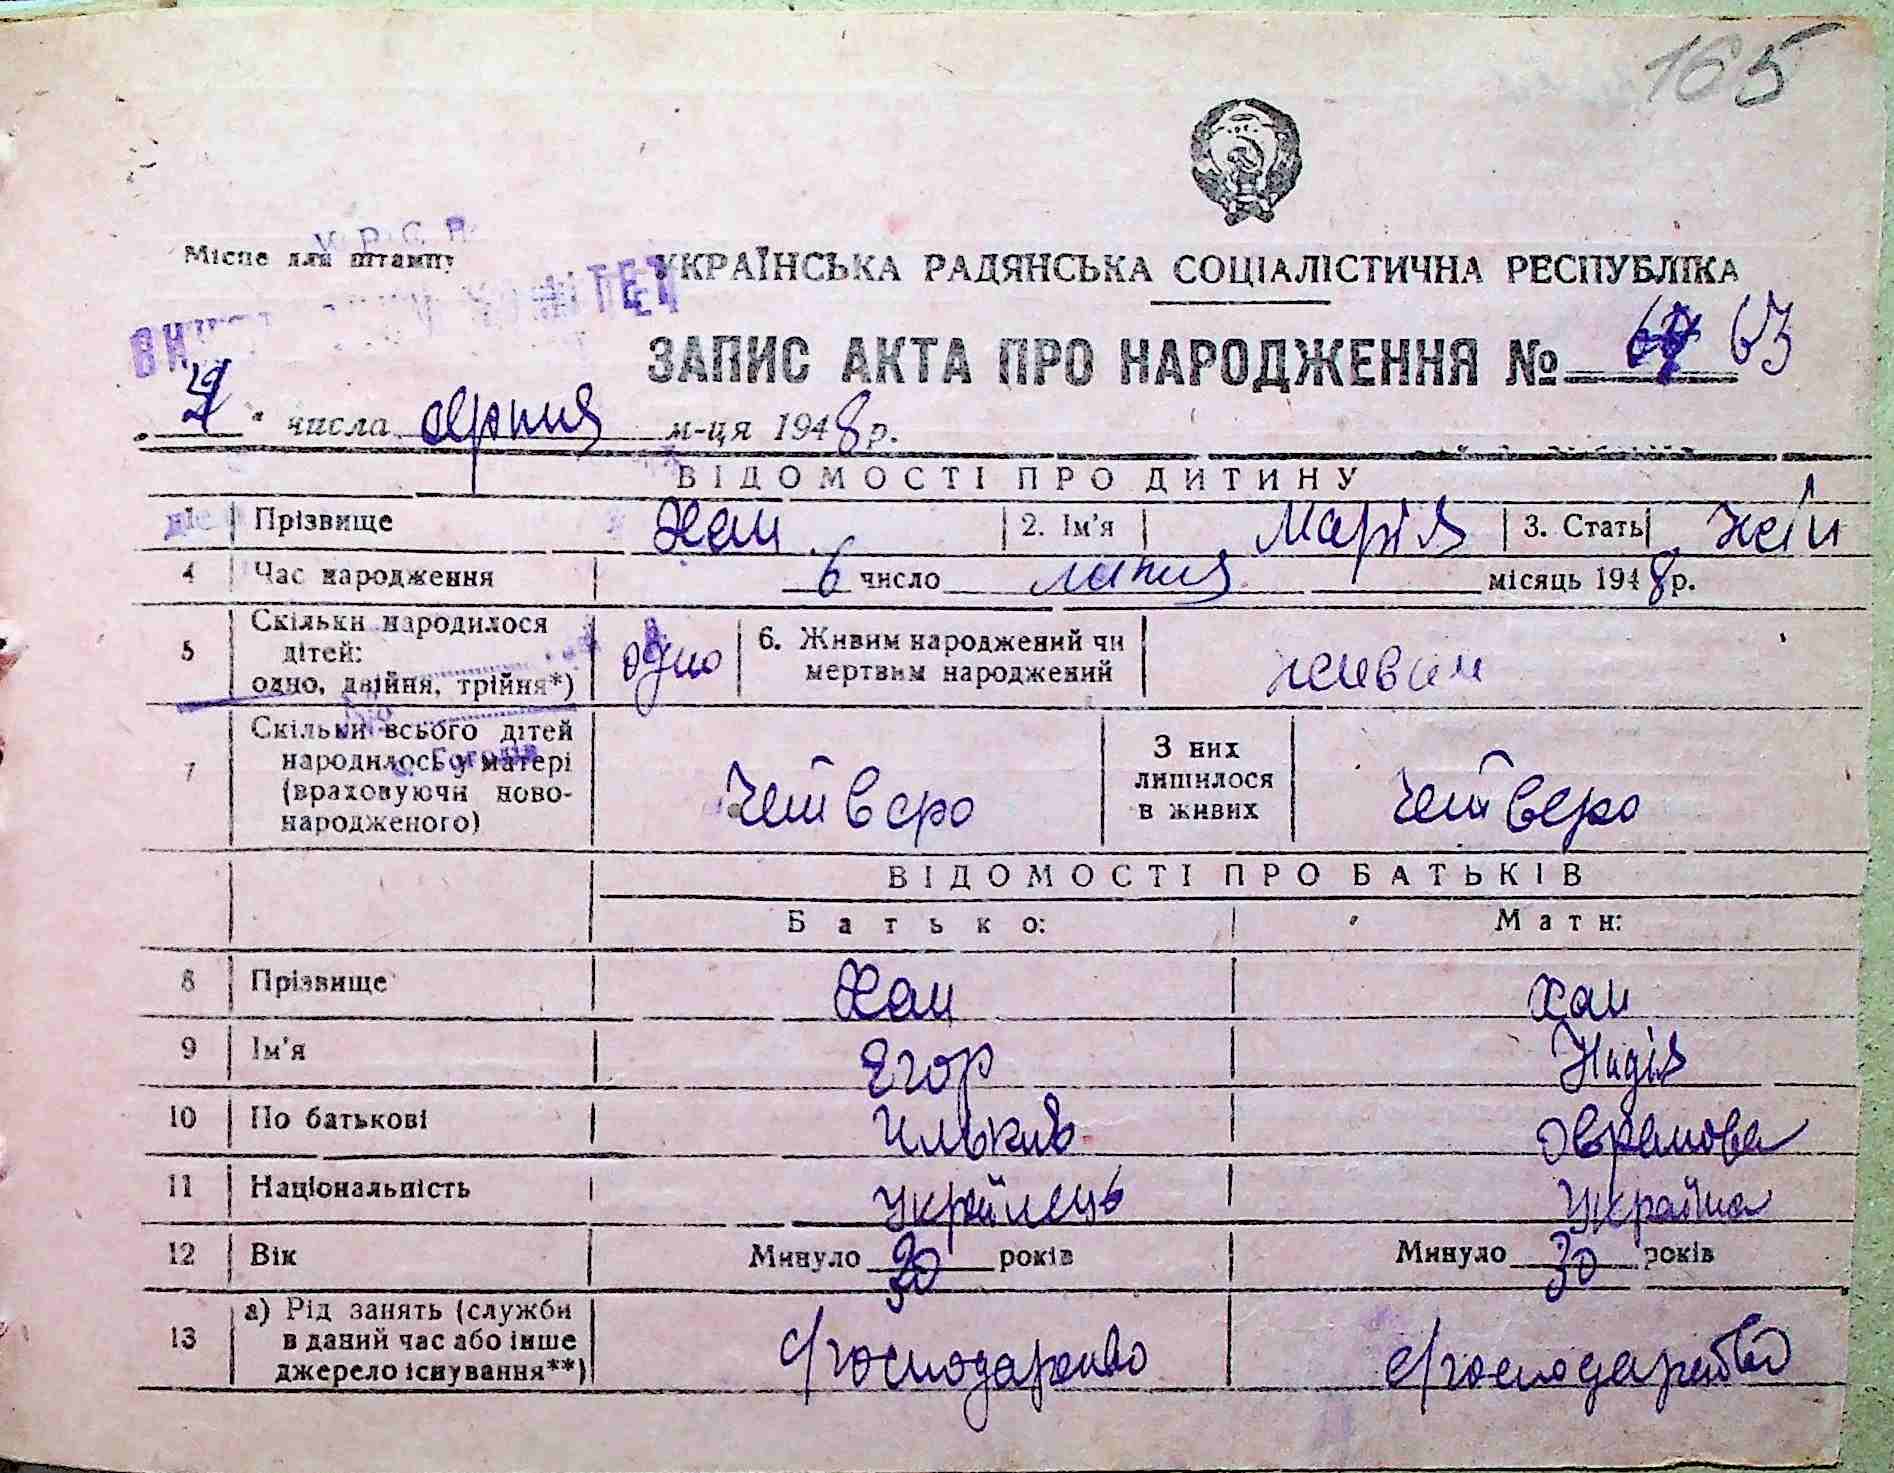 165
У.Р.С.Р.
Місце для штампу
УКРАЇНСЬКА РАДЯНСЬКА СОЦІАЛІСТИЧНА РЕСПУБЛІКА
КОМІТЕТ
ЗАПИС АКТА ПРО НАРОДЖЕННЯ № 63
числа серпня м-ця 1948 р.
ВІДОМОСТІ ПРО ДИТИНУ
1 Прізвище Хам 2. Ім'я Марія 3. Стать жін
4 Час народження 6 число липня місяць 1948 р.
5 Скільки народилося дітей: одно, двійня, трійня*) одно 6. Живим народжений чи мертвим народжений живим
7 Скільки всього дітей народилось у матері (враховуючи ново-народженого) четверо З них лишилося в живих четверо
ВІДОМОСТІ ПРО БАТЬКІВ
Батько: Мати:
8 Прізвище Хам Хам
9 Ім'я Егор Надія
10 По батькові Ильків Оврамова
11 Національність Українець Україна
12 Вік Минуло 30 років Минуло 30 років
13 а) Рід занять (служби
в даний час або інше
джерело існування**) с/господарство с/господарство